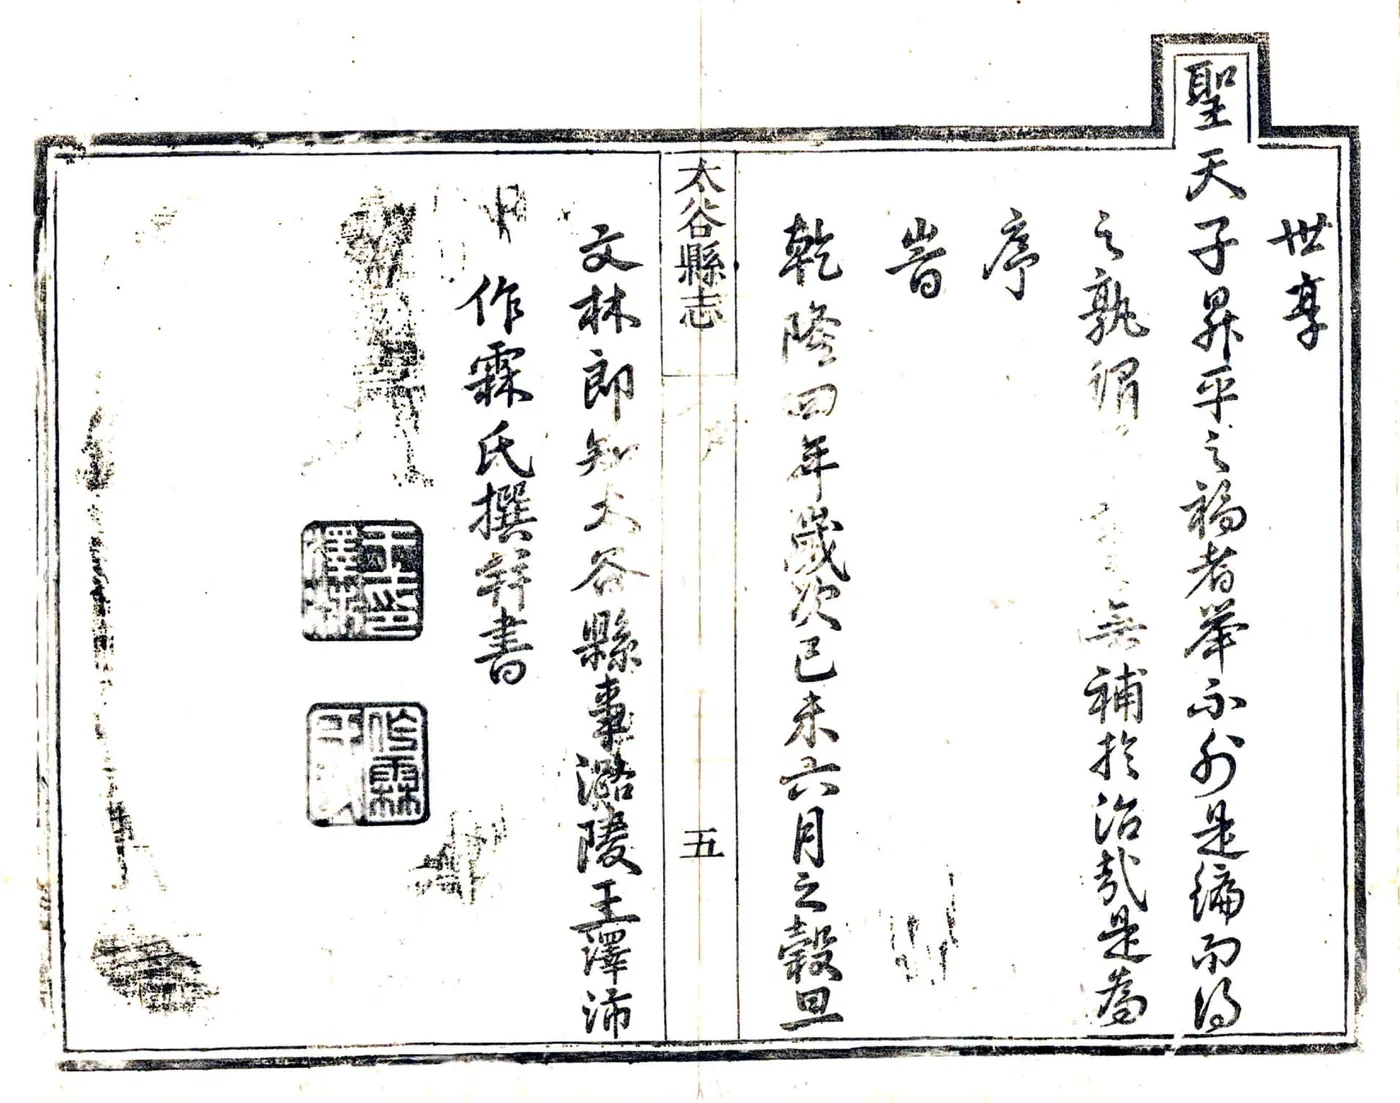 世享
聖天子昇平之福者舉不外是編而得
之孰謂 無補於治哉是為
序
旹
乾隆四年歲次己未六月之穀旦
太谷縣志
五
文林郎知太谷縣事潞陵王澤沛
作霖氏撰并書
王澤沛印
作霖